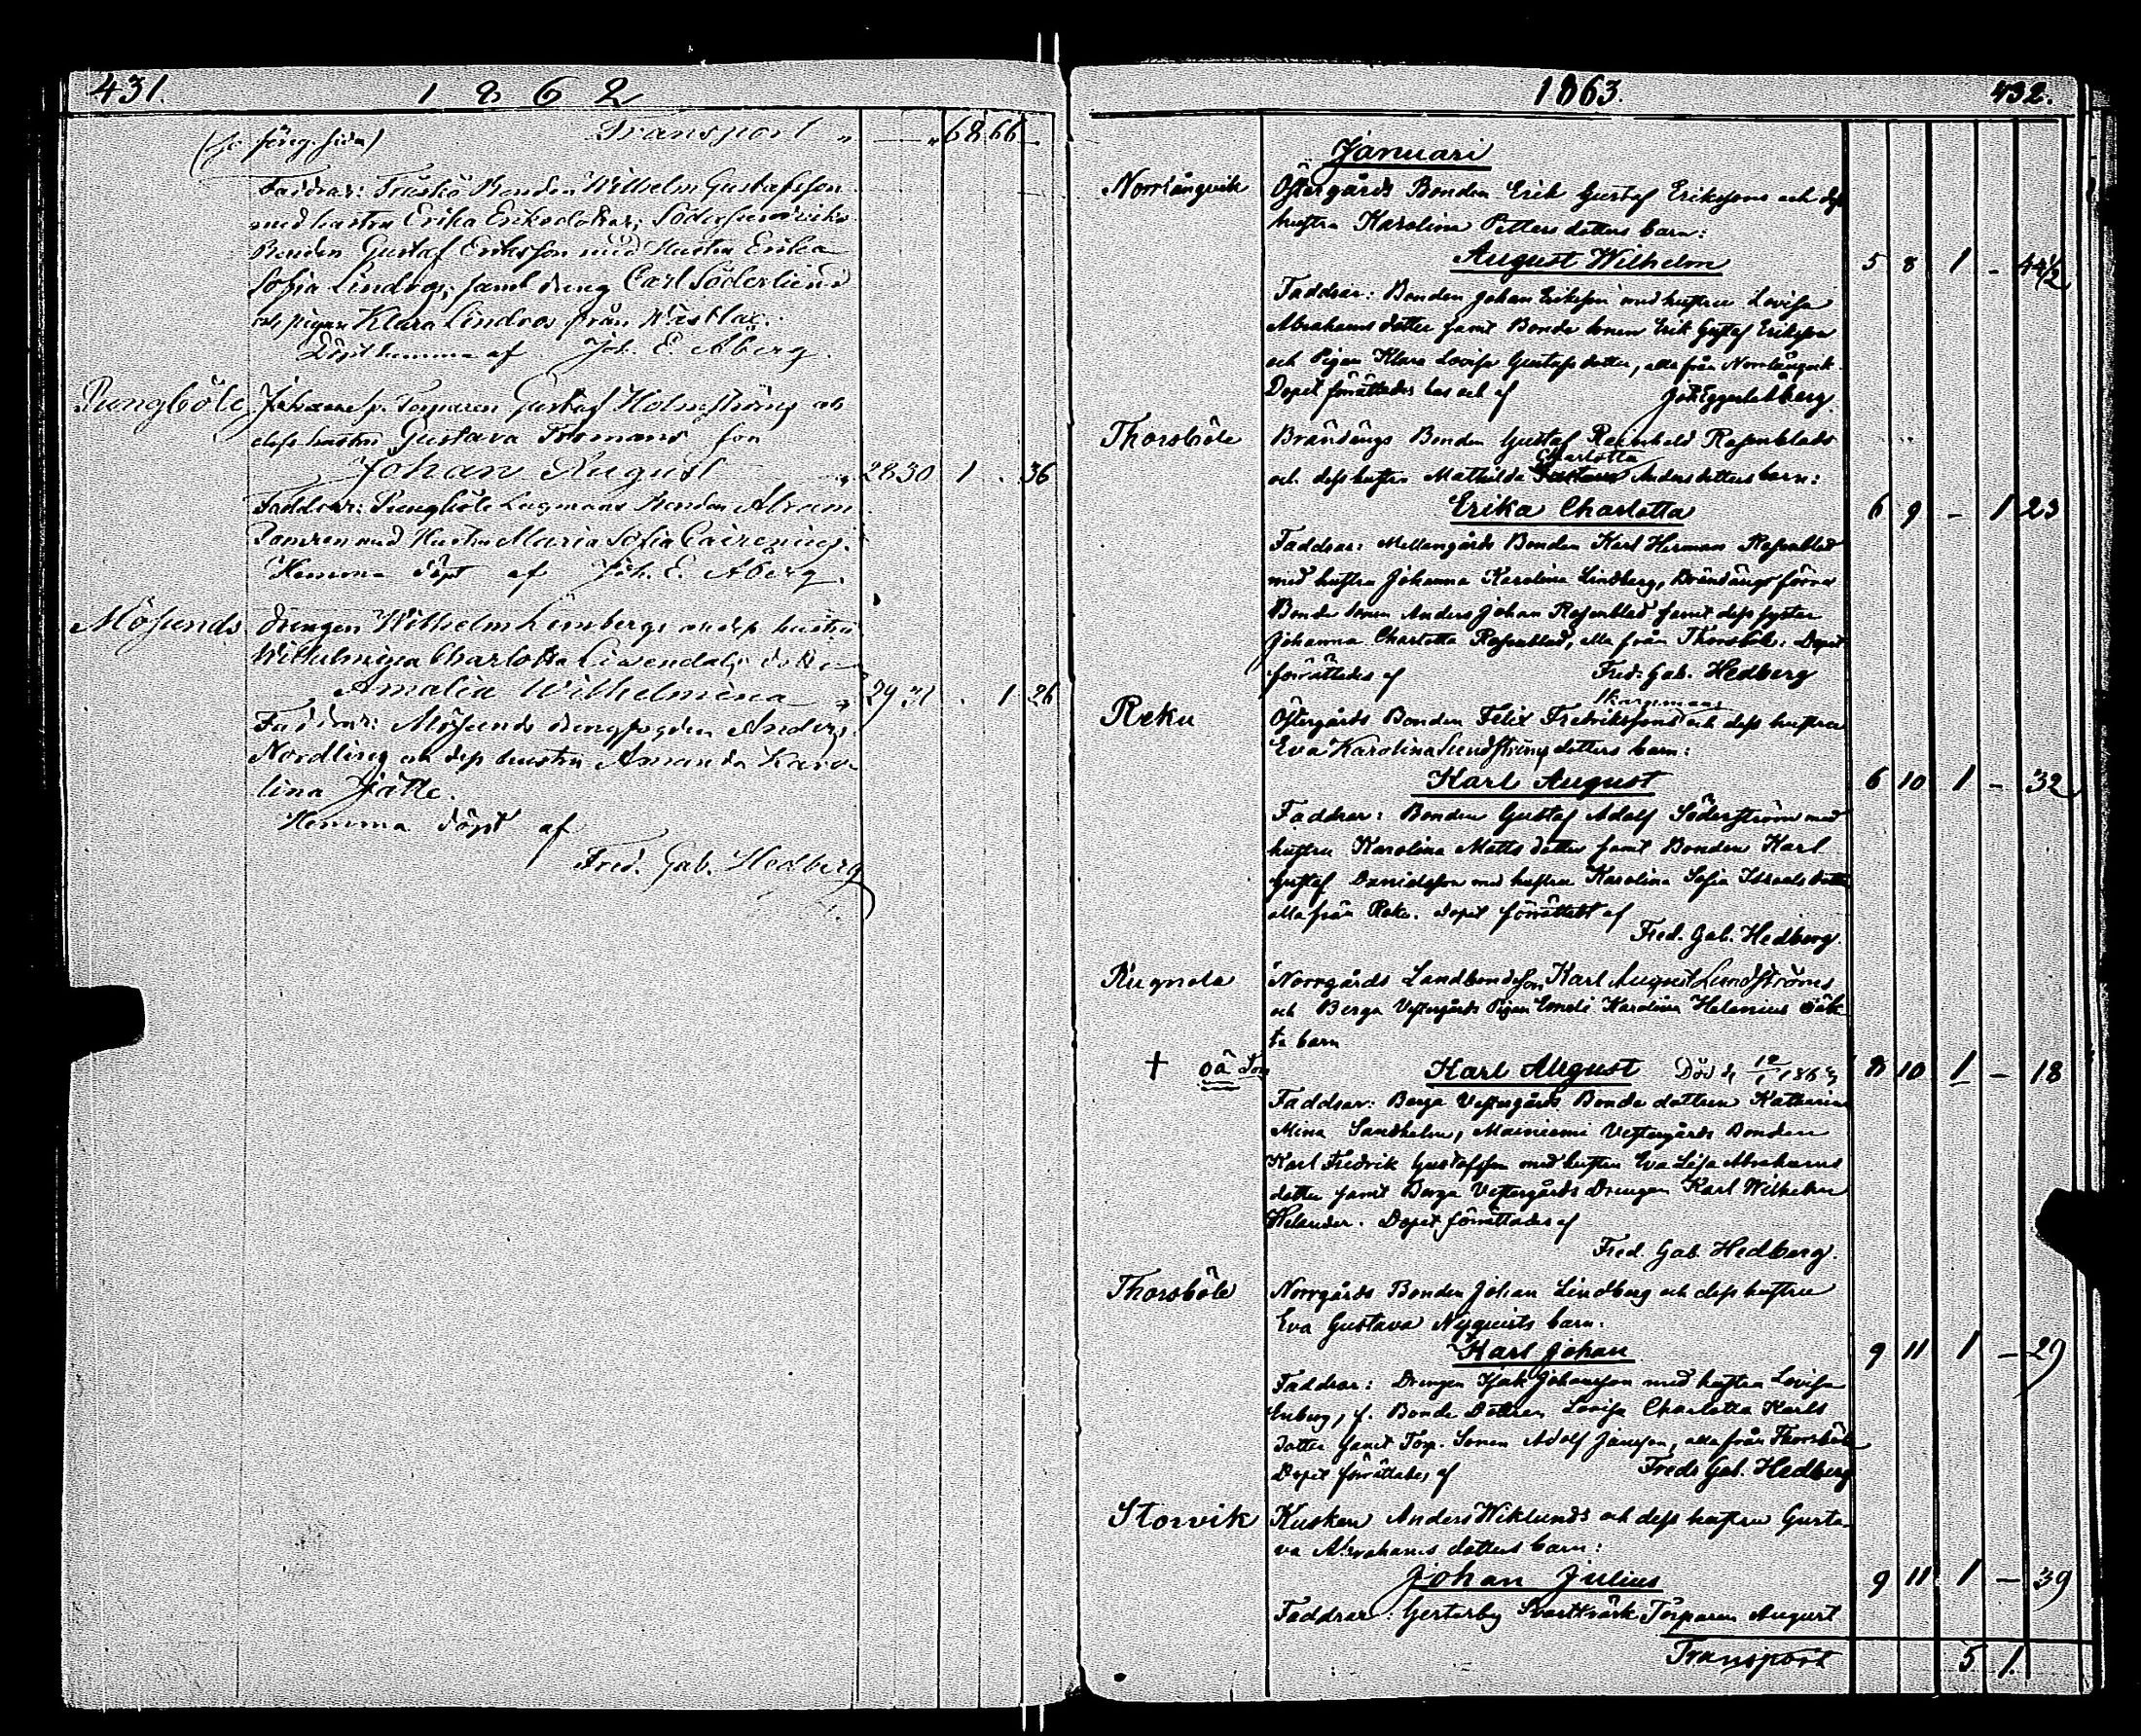 431. 1862
(se föreg. sida) Transport " — " 68 66 —
Faddrar: Träskö Bonden Wilhelm Gustafsson
med hustru Erika Eriksdotter; Södersundviks
Bonden Gustaf Eriksson med Hustru Erika
Sofia Lindros; samt dreng Carl Söderlund
och pigan Klara Lindros från Westlax.
Döpt hemma af Joh. E. Åberg.
Pungböle Torparen Gustaf Holmströms och
dess hustru Gustava Tommans son
Johan August " 28 30 1 . 36
Faddrar: Pungböle Lagmans Bonden Abram
med Hustru Maria Sofia Cairenius.
Hemma döpt af Joh. E. Åberg.
Mösunds drengen Wilhelm Lembergs och dess hustru
Wilhelmina Charlotta Liwendahls dotter
Amalia Wilhelmina " 29 31 . 1 26
Faddrar: Mösunds drengfogden Anders
Nordling och dess hustru Amanda Karo-
lina Jätte.
Hemma döpt af
Fred. Gab. Hedberg
1863. 432.
Januari
Norrlångvik Östergårds Bonden Erik Gustaf Erikssons och dess
hustru Karolina Petters dotters barn:
August Wilhelm 5 8 1 - 44½
Faddrar: Bonden Johan Eriksson med hustru Lovisa
Abrahams dotter samt Bonde sonen Erik Gustaf Eriksson
och Pigan Klara Lovisa Gustafs dotter, alla från Norrlångvik.
Dopet förrättades här och af Joh. Eggert Åberg.
Thorsböle Brändängs Bonden Gustaf Reinhold Rosenblads
Charlotta
och dess hustru Mathilda Gustava Anders dotters barn:
Erika Charlotta 6 9 - 1 23
Faddrar: Mellangårds Bonden Karl Herman Rosenblad
med hustru Johanna Karolina Lindberg, Brändängs förra
Bonde sonen Anders Johan Rosenblad samt dess syster
Johanna Charlotta Rosenblad, alla från Thorsböle. Dopet
förrättades af Fred. Gab. Hedberg
Reku Östergårds Bonden Felix Fredrikssons och dess hustru
Eva Karolina Sundströms dotters barn:
Karl August 6 10 1 - 32
Faddrar: Bonden Gustaf Adolf Söderström med
hustru Karolina Matts dotter samt Bonden Karl
Gustaf Danielsson med hustru Karolina Sofia Israels dotter
alla från Reku. Dopet förrättadt af
Fred. Gab. Hedberg.
Rugnola Norrgårds Landbondeson Karl August Lundströms
och Berga Vestergårds Pigan Karolina Helenius oäk-
ta barn
+ oä. Son Karl August Död d. 12/1 1863 8 10 1 - 18
Faddrar: Berga Vestergårds Bonde dottren Katharina
Mina Sandholm, Mainiemi Vestergårds Bonden
Karl Fredrik Gustafsson med hustru Eva Lisa Abrahams
dotter samt Berga Vestergårds Drengen Karl Wilhelm
Helander. Dopet förrättades af
Fred. Gab. Hedberg.
Thorsböle Norrgårds Bonden Johan Lindberg och dess hustru
Eva Gustava Nyqvists barn:
Karl Johan 9 11 1 - 29
Faddrar: Drengen Isak Johansson med hustru Lovisa
Enberg, f. Bonde Dottren Lovisa Charlotta Karls
dotter samt Torp. Sonen Adolf Jansson, alla från Thorsböle
Dopet förrättades af Fred. Gab. Hedberg
Storvik Kusken Anders Wiklunds och dess hustru Gusta-
va Abrahams dotters barn:
Johan Julius 9 11 1 - 39
Faddrar: Gesterby Svartkärr Torparen August
Transport 5 1.